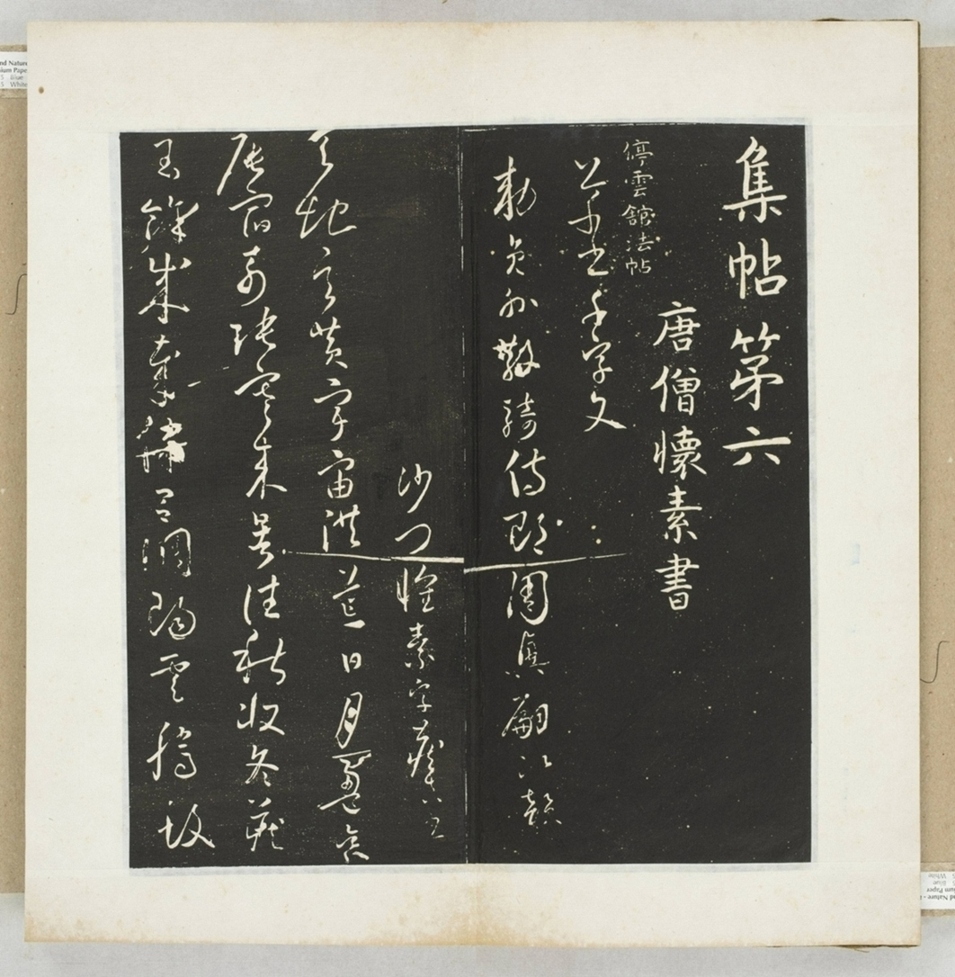 集帖第六
唐僧懷素書
停雲館法帖
千字文
敕員外散騎侍郎周興嗣次韻
沙門懷素字藏真書
天地玄黃宇宙洪荒日月盈昃
辰宿列張寒來暑往秋收冬藏
閏餘成歲律呂調陽雲騰致